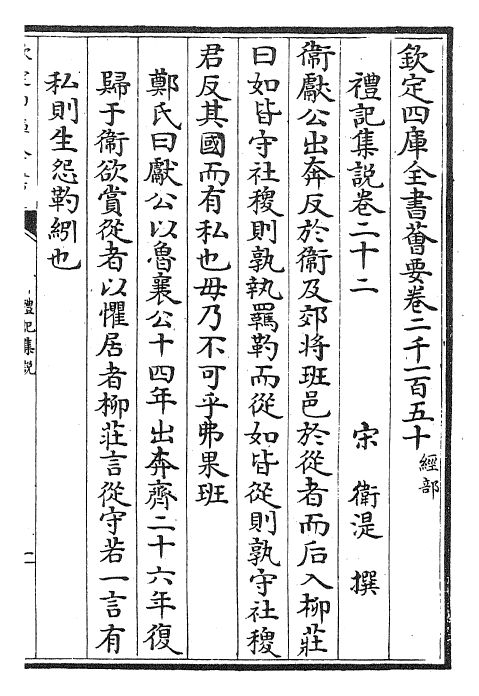 欽定四庫全書薈要卷二千一百五十 經部
禮記集説卷二十二 宋 衛湜 撰
衞獻公出奔反於衞及郊將班邑於從者而后入柳莊
曰如皆守社稷則孰執羈靮而從如皆從則孰守社稷
君反其國而有私也毋乃不可乎弗果班
鄭氏曰獻公以魯襄公十四年出奔齊二十六年復
歸于衞欲賞從者以懼居者柳莊言從守若一言有
私則生怨靮紖也
禮記集説